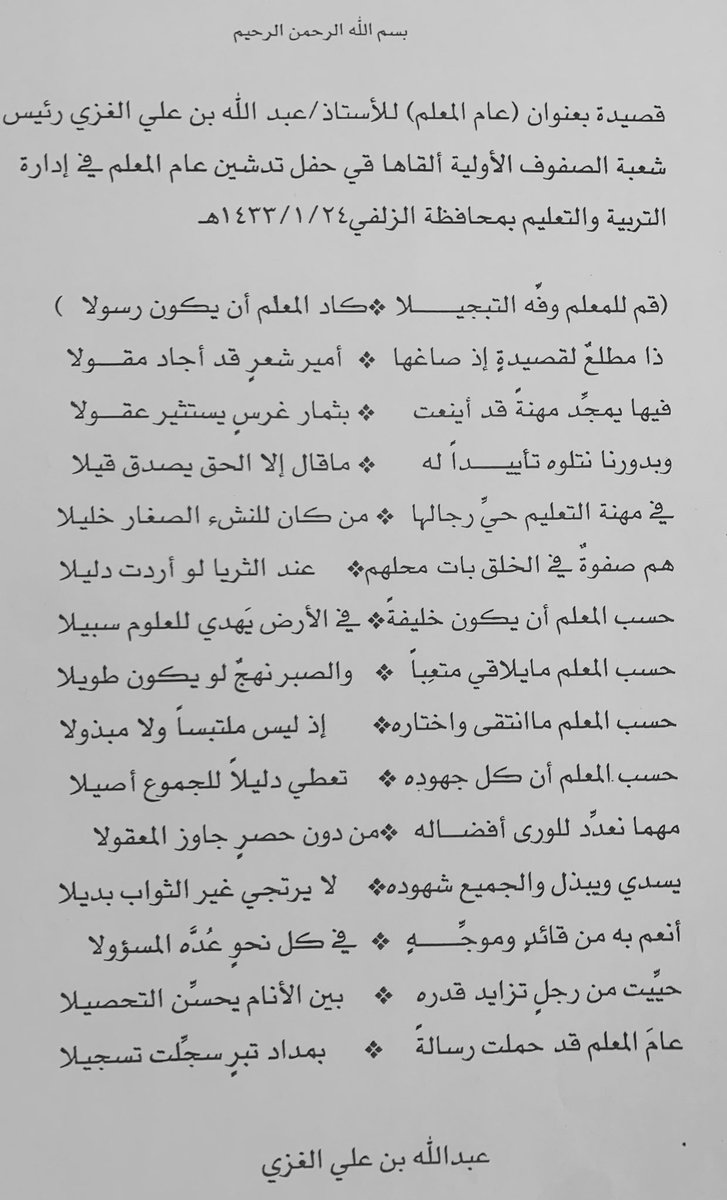 بسم الله الرحمن الرحيم
قصيدة بعنوان (عام المعلم) للأستاذ/عبد الله بن علي الغزي رئيس
شعبة الصفوف الأولية ألقاها في حفل تدشين عام المعلم في إدارة
التربية والتعليم بمحافظة الزلفي١٤٣٣/١/٢٤هـ
(قم للمعلم وفّه التبجيـــــلا ❖كاد المعلم أن يكون رسولا )
ذا مطلعٌ لقصيدةٍ إذ صاغها ❖ أمير شعرٍ قد أجاد مقـــولا
فيها يمجِّد مهنةً قد أينعت ❖ بثمار غرسٍ يستثير عقـــولا
وبدورنا نتلوه تأييـــــداً له ❖ ماقال إلا الحق يصدق قيلا
في مهنة التعليم حيِّ رجالها ❖ من كان للنشء الصغار خليلا
هم صفوةٌ في الخلق بات محلهم❖ عند الثريا لو أردت دليلا
حسب المعلم أن يكون خليفةً❖ في الأرض يَهدي للعلوم سبيلا
حسب المعلم مايلاقي متعِباً ❖ والصبر نهجٌ لو يكون طويلا
حسب المعلم ماانتقى واختاره❖ إذ ليس ملتبساً ولا مبذولا
حسب المعلم أن كل جهودِه ❖ تعطي دليلاً للجموع أصيلا
مهما نعدِّد للورى أفضـــاله ❖من دون حصرٍ جاوز المعقولا
يسدي ويبذل والجميع شهوده❖ لا يرتجي غير الثواب بديلا
أنعم به من قائدٍ وموجِّـــــهٍ ❖ في كل نحوٍ عُدَّه المسؤولا
حيِّيت من رجلٍ تزايد قدره ❖ بين الأنام يحسِّن التحصيلا
عامَ المعلم قد حملت رسالةً ❖ بمداد تبرٍ سجِّلت تسجيلا
عبدالله بن علي الغزي